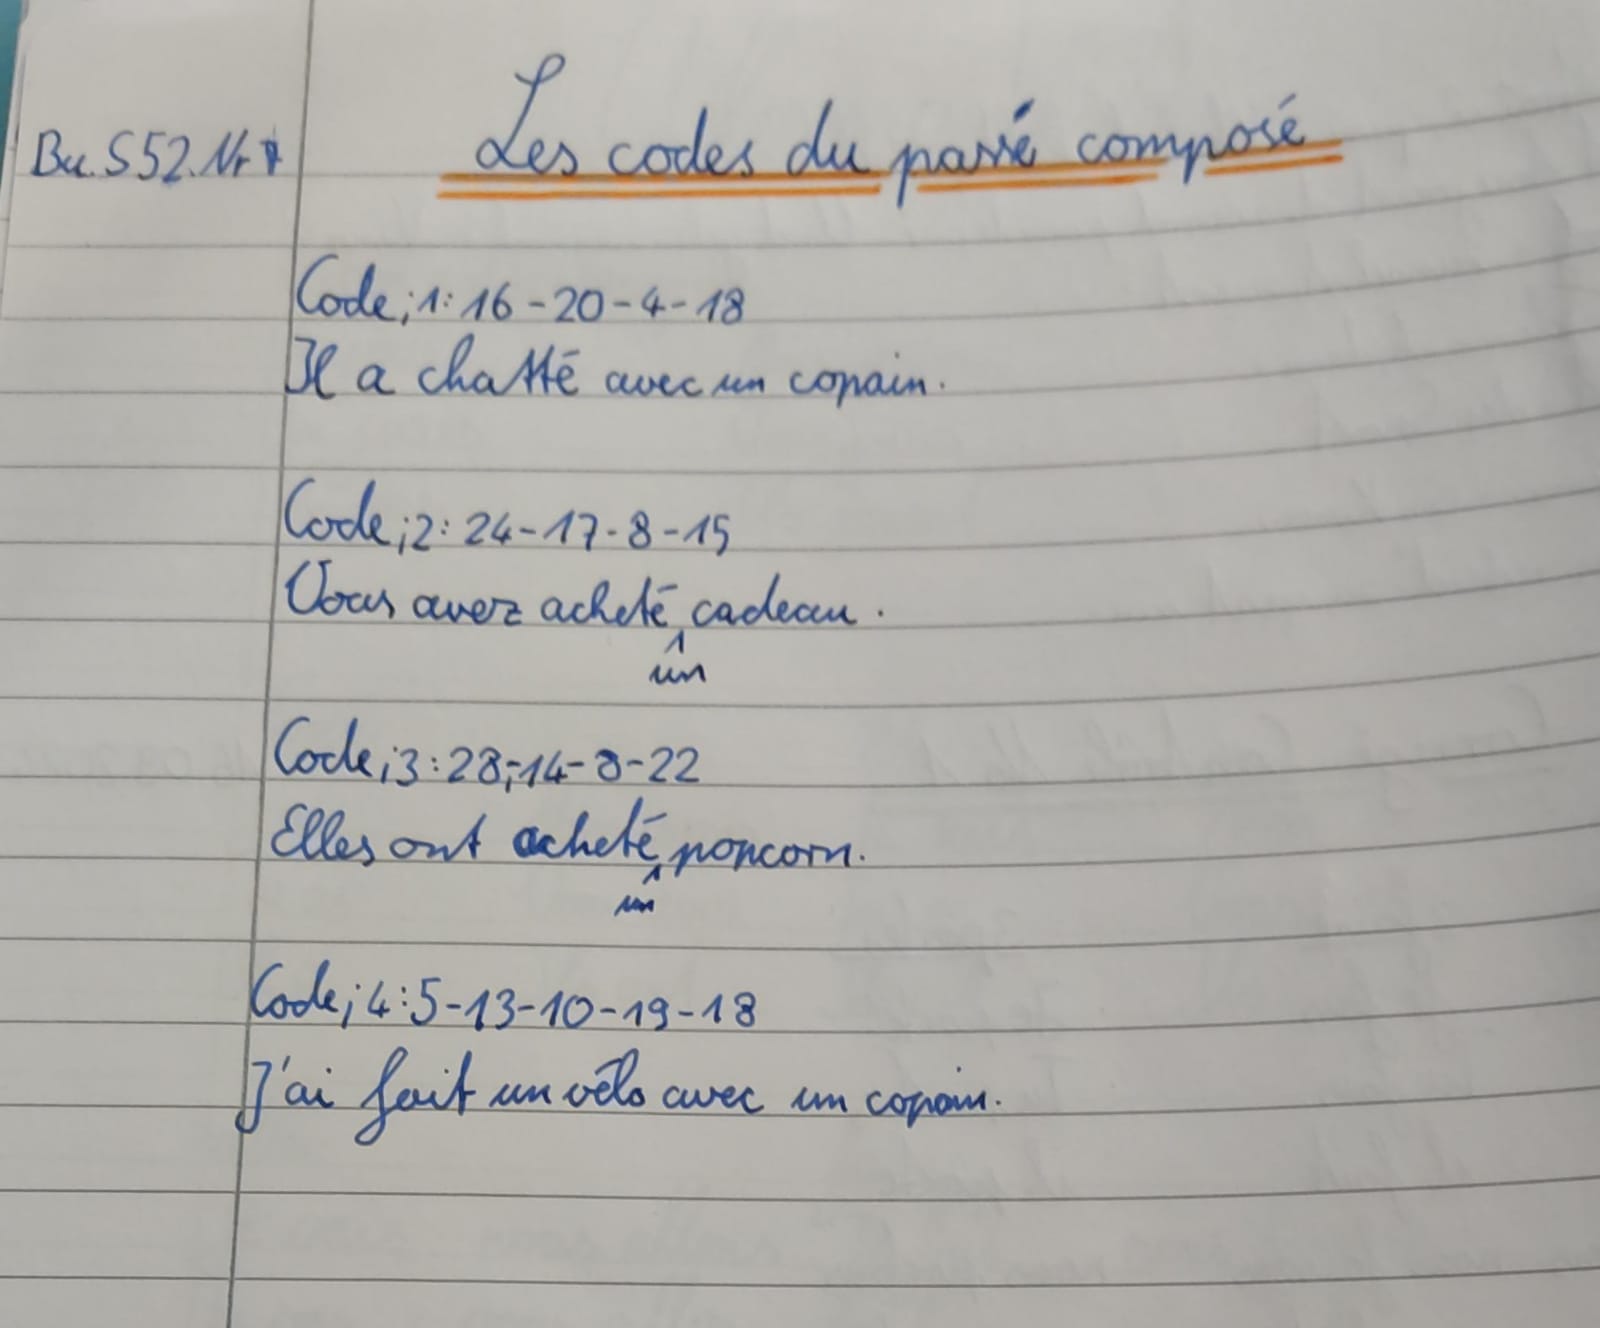 Les codes du passé composé
Bu. S52. Nr
Code; 1: 16-20-4-18
Il a chatté avec un copain.
Code; 2: 24-17-8-15
Vous avez acheté cadeau.
un
Code; 3: 28;-14-8-22
Elles ont acheté poncorn.
un
Code; 4: 5-13-10-19-18
J'ai fait un vélo avec un copain.